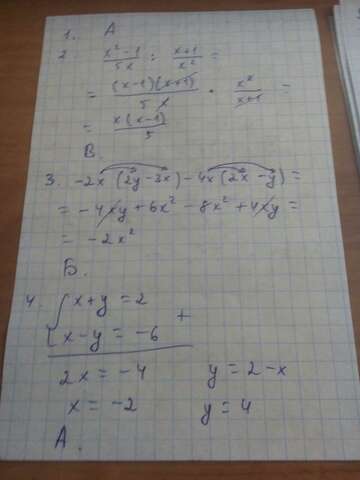 1. A
2. x²-1 / 5x : x+1 / x² =
= (x-1)(x+1) / 5x · x² / x+1 =
= x(x-1) / 5
В.
3. -2x (2y-3x) - 4x(2x-y) =
= -4xy + 6x² - 8x² + 4xy =
= -2x²
Б.
4. { x+y = 2
x-y = -6 +
2x = -4 y = 2-x
x = -2 y = 4
A